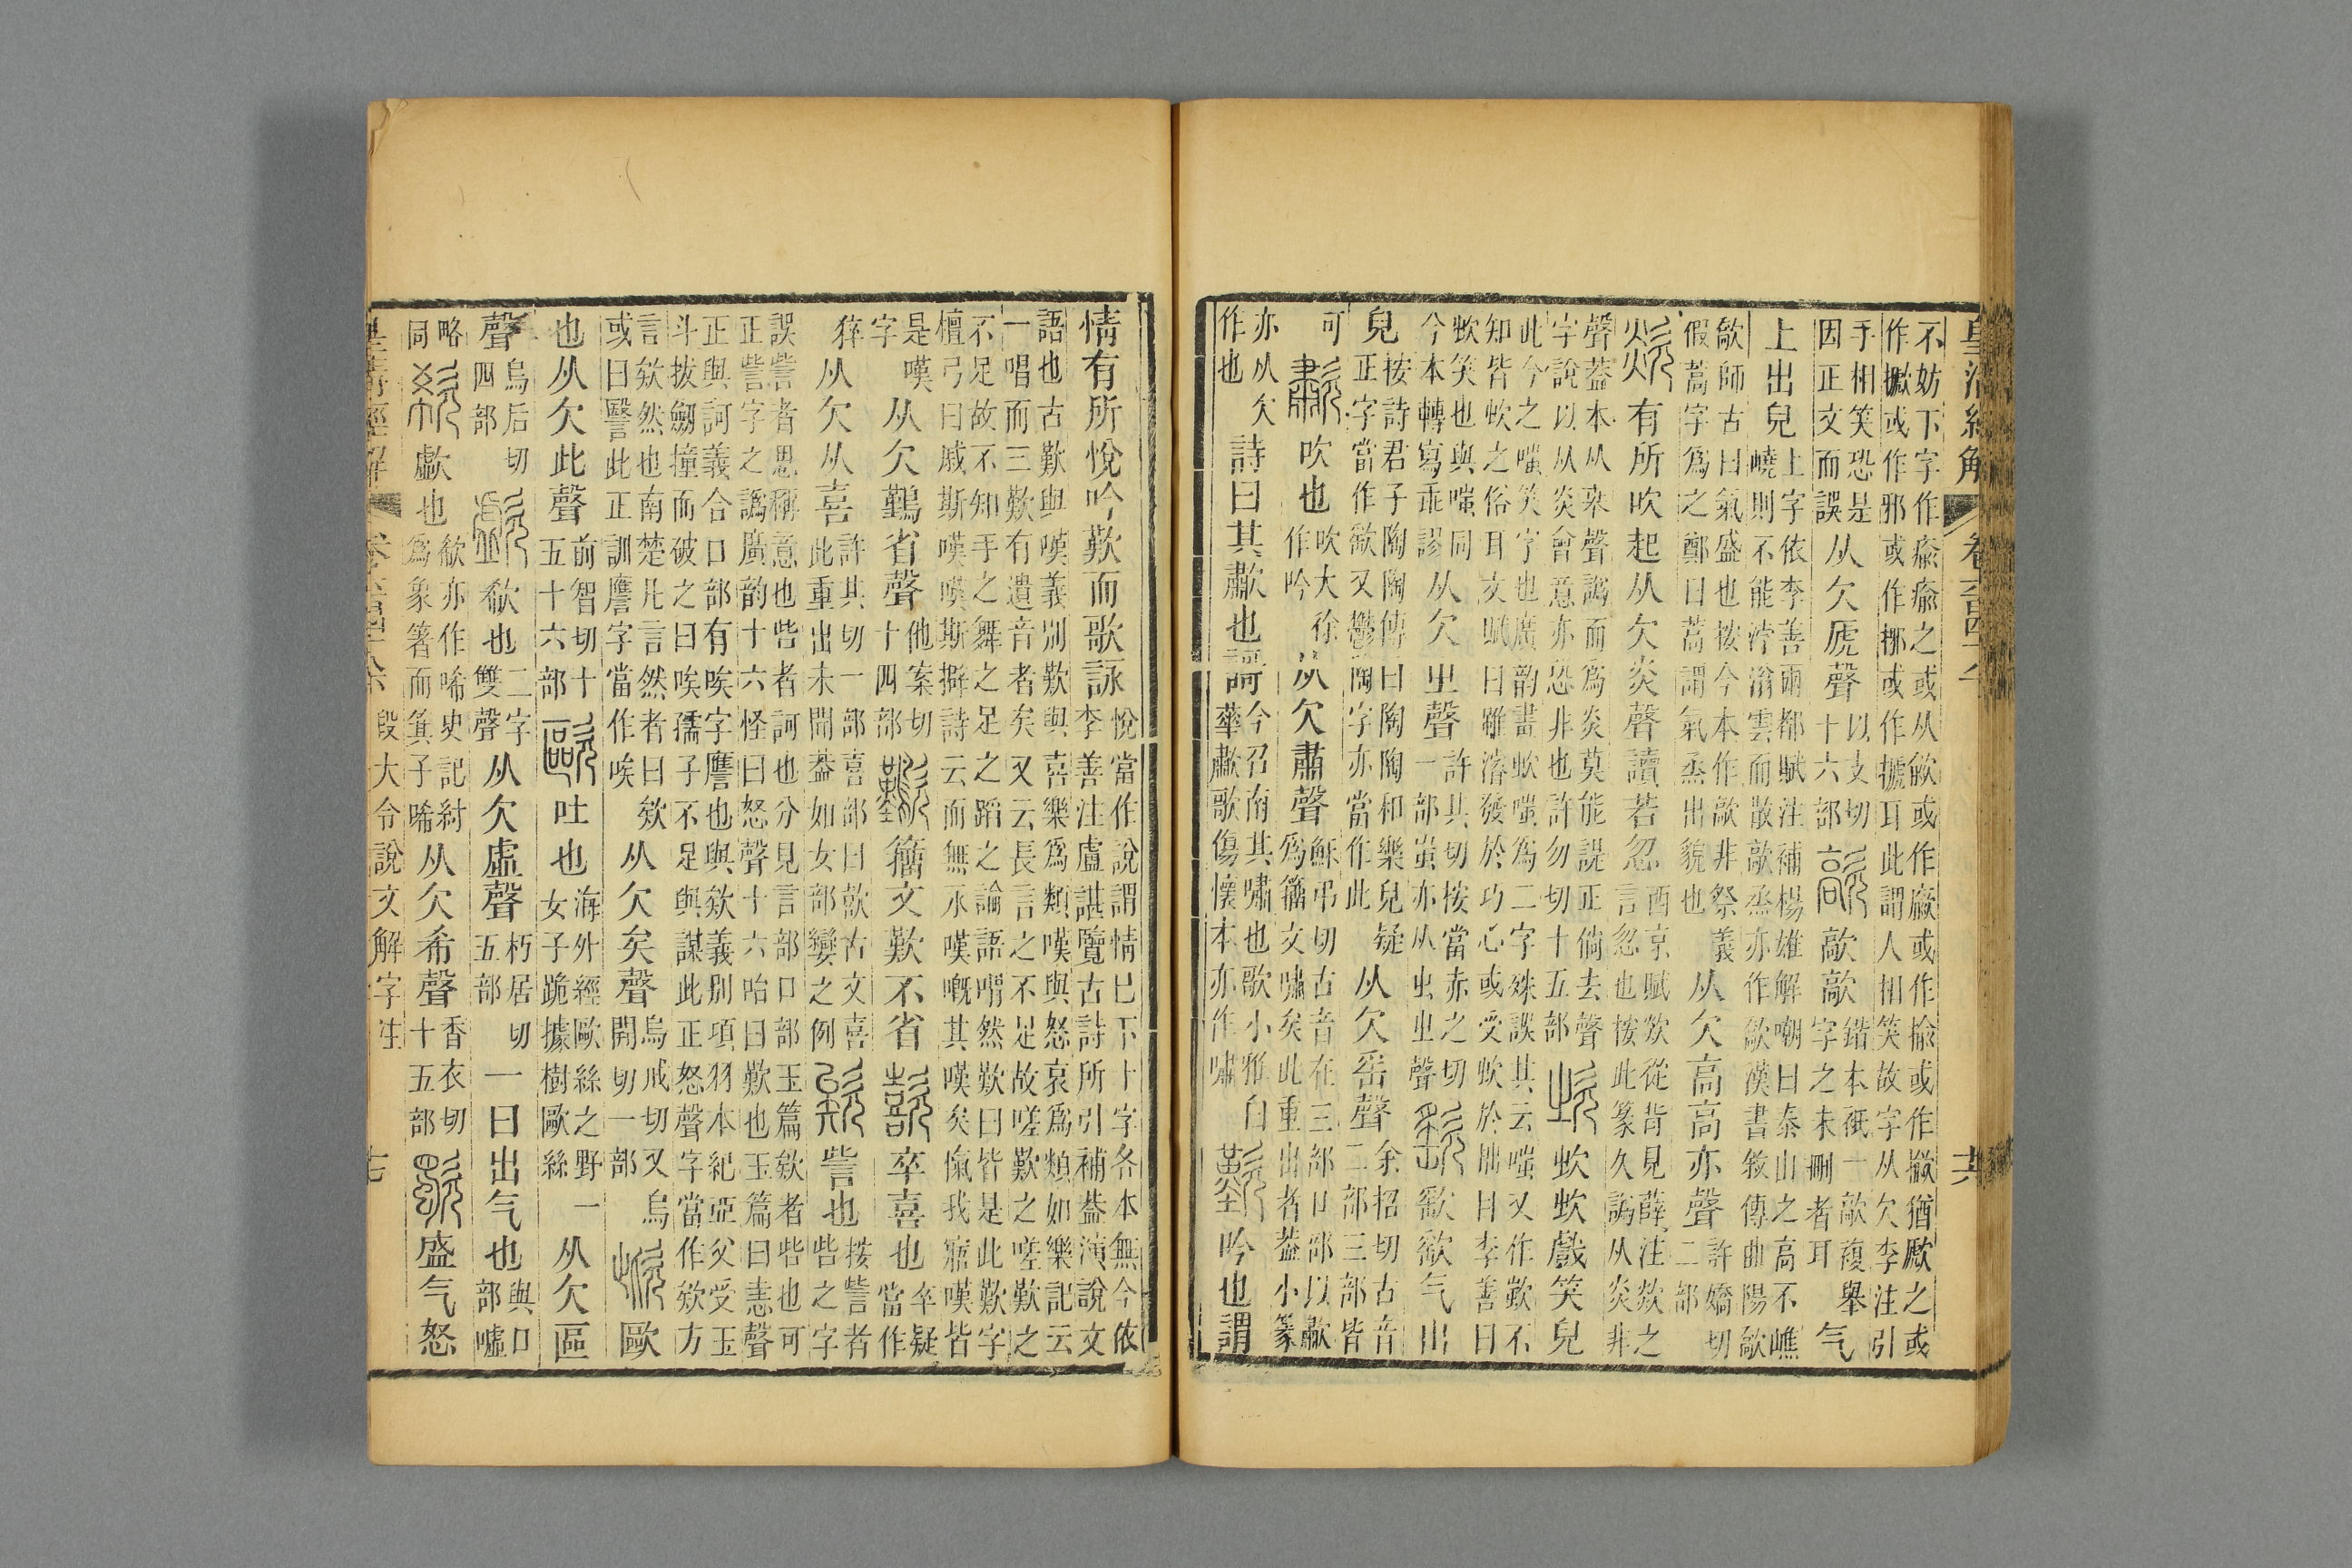 皇清經解 卷六百四十八 十六
不妨下字作瘉瘉之或从歈或作廠或作揄或作撇猶厥之或作撅或作邪或作挪或作摅耳此謂人相笑故字从欠李注引
手相笑恐是因正文而誤从欠虒聲以支切十六部歊歊歊鍇本祇一歊複舉字之未刪者耳气
上出皃上字依李善南都賦注補楊雄解嘲曰泰山之高不嶕嶢則不能浡滃雲而散歊烝亦作歊漢書敘傳曲陽歊
歊師古曰氣盛也按今本作歊非祭義假蒿字爲之鄭曰蒿謂氣烝出貌也从欠高高亦聲許嬌切二部
欻有所吹起从欠炎聲讀若忽西京賦欻從背見薛注欻之言忽也按此篆久譌从炎非
聲葢本从桒聲譌而爲炎莫能諟正倘去聲字說以从炎會意亦恐非也許勿切十五部㰞㰞㰞戲笑皃
此今之嗤笑字也廣韵畫㰞嗤爲二字殊誤其云嗤又作歎不知皆㰞之俗耳文賦曰雖濬發於巧心或受㰞於拙目李善曰
㰞笑也與嗤同今本轉寫乖謬从欠㞢聲許其切按當赤之切一部蚩亦从虫㞢聲𣣳𣣳𣣳气出
皃按詩君子陶陶傳曰陶陶和樂皃疑正字當作𣣳又鬱陶字亦當作此从欠䍃聲余招切古音二部三部皆
可歗吹也吹大徐作吟从欠肅聲穌弔切古音在三部口部以歗爲籒文嘯矣此重出者葢小篆
亦从欠作也詩曰其歗也謌今召南其嘯也歌小雅白華歗歌傷懷本亦作嘯歎吟也謂
情有所悅吟歎而歌詠悅當作說謂情已下十字各本無今依李善注盧諶覽古詩所引補葢演說文
語也古歎與嘆義別歎與喜樂爲類嘆與怒哀爲類如樂記云一唱而三歎有遺音者矣又云長言之不足故嗟歎之嗟歎之
不足故不知手之舞之足之蹈之論語喟然歎曰皆是此歎字檀弓曰戚斯嘆嘆斯擗詩云而無永嘆嘅其嘆矣愾我寤嘆皆
是嘆字从欠鷬省聲他案切十四部籒文歎不省歖卒喜也卒疑當作
猝从欠从喜許其切一部喜部曰歖古文喜此重出未聞葢如女部孌之例欸訾也按訾者呰之字
誤訾者思稱意也呰者訶也分見言部口部玉篇欸者呰也可正訾字之譌廣韵十六怪曰怒聲十六咍曰歎也玉篇曰恚聲
正與訶義合口部有唉字譍也與欸義別項羽本紀亞父受玉斗拔劒撞而破之曰唉孺子不足與謀此正怒聲字當作欸方
言欸然也南楚凡言然者曰欸或曰䃜此正訓譍字當作唉从欠矣聲烏戒切又烏開切一部㰣歐
也从欠此聲前智切十五十六部歐吐也海外經歐絲之野一女子跪據樹歐絲从欠區
聲烏后切四部歔欷也二字雙聲从欠虛聲朽居切五部一曰出气也與口部嘘
略同欷歔也欷亦作唏史記紂爲象箸而箕子唏从欠希聲香衣切十五部歜盛气怒
皇清經解 卷六百四十八 段大令說文解字注 十七